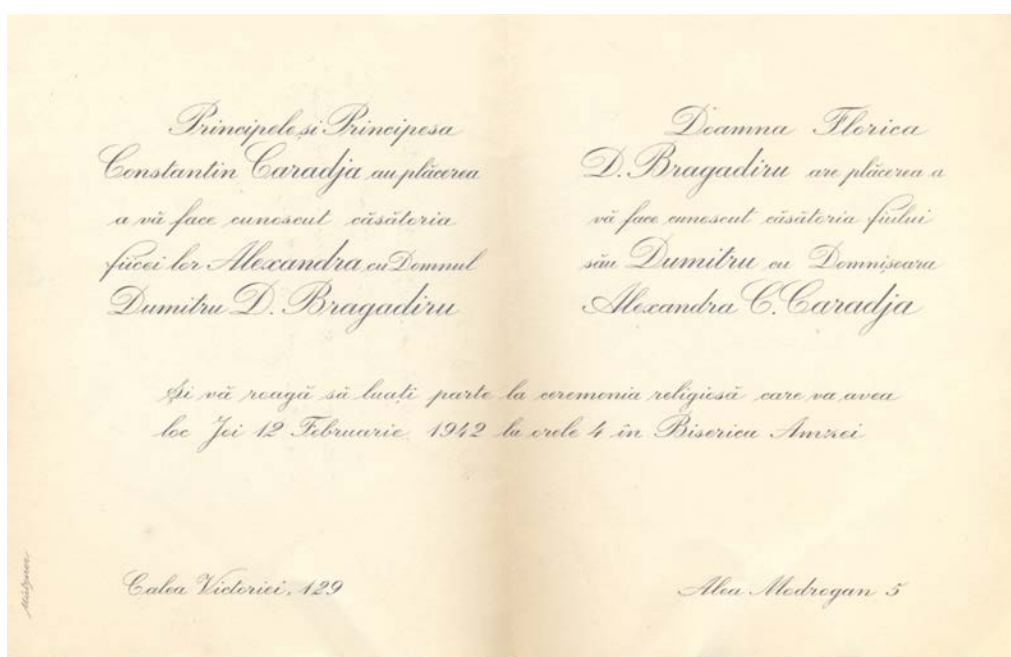 Principele și Principesa
Constantin Caradja au plăcerea
a vă face cunoscut căsătoria
fiicei lor Alexandra cu Domnul
Dumitru D. Bragadiru
Doamna Florica
D. Bragadiru are plăcerea a
vă face cunoscut căsătoria fiului
său Dumitru cu Domnișoara
Alexandra C. Caradja
Și vă roagă să luați parte la ceremonia religiosă care va avea
loc Joi 12 Februarie 1942 la orele 4 în Biserica Amzei
Calea Victoriei, 129
Alea Modrogan 5